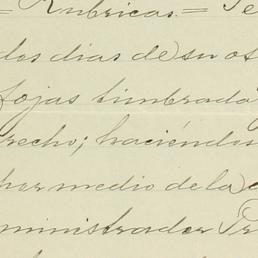 = Rubricas = Te
dos dias de su ot
fojas timbrada
recho; haciéndos
por medio de la
ministrador Pr